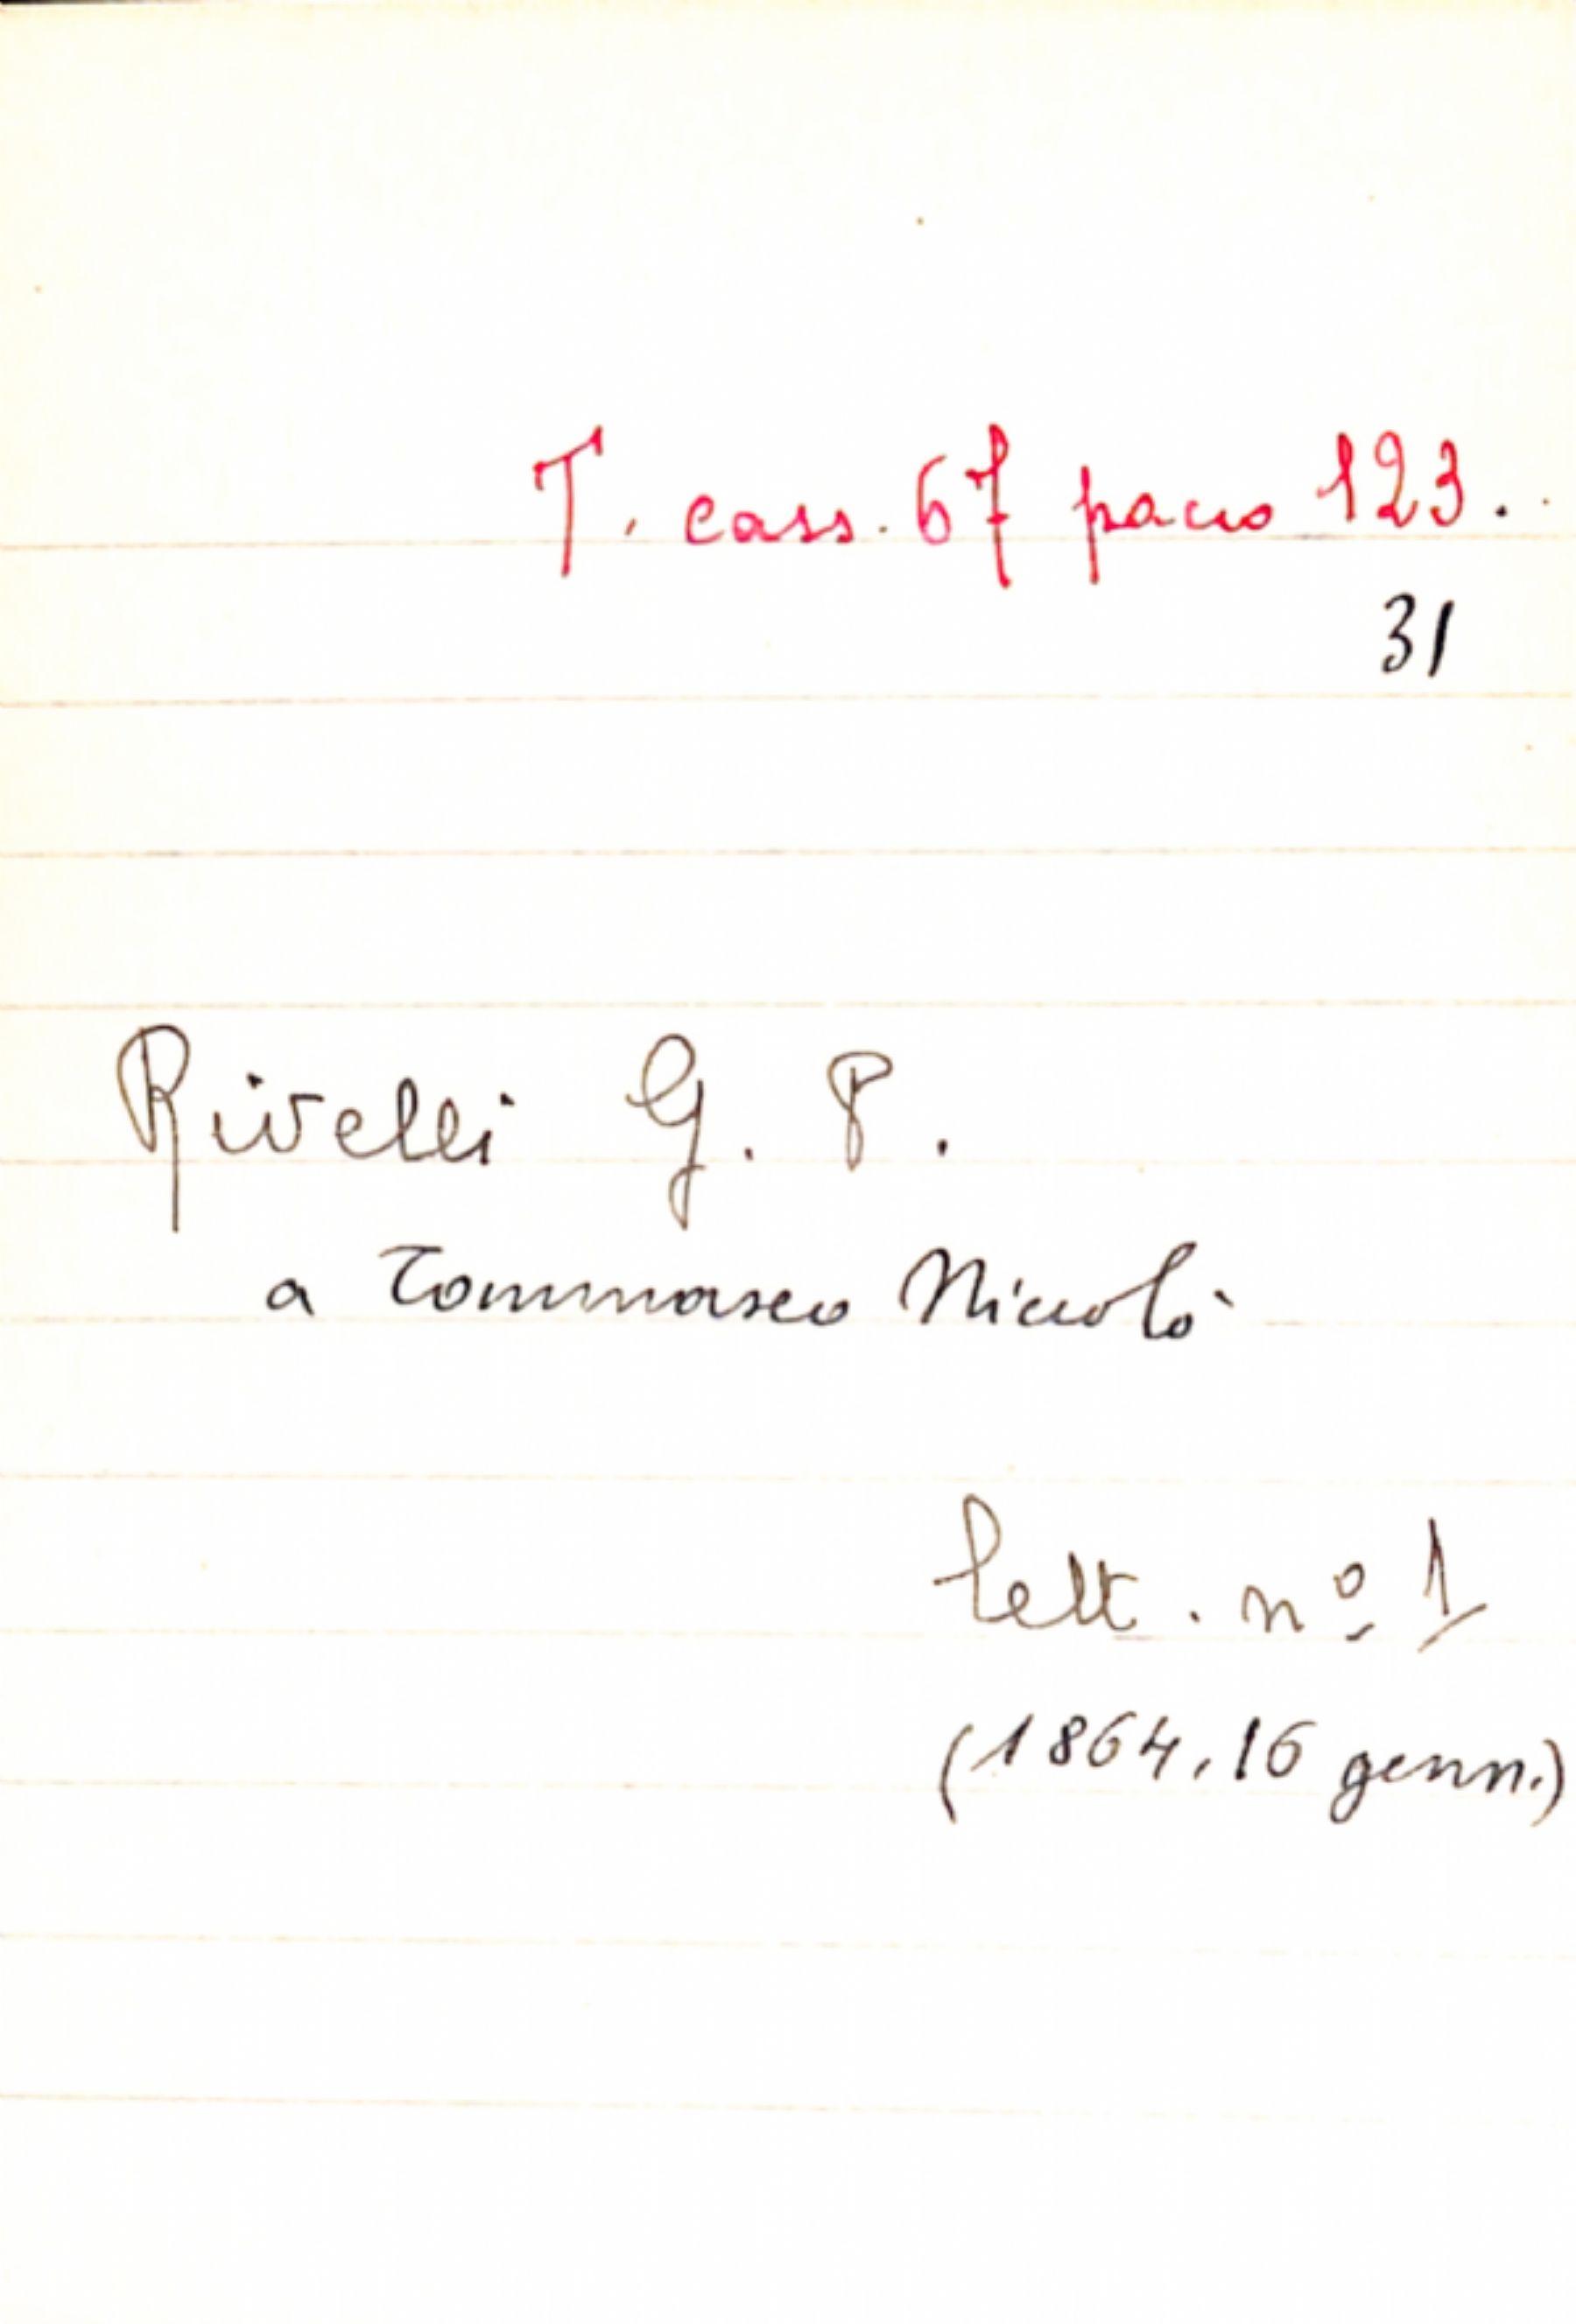 T. cass. 67 pacco 123.
31
Rivelli G. P.
a Tommaseo Niccolò
lett. nº 1
(1864, 16 genn.)